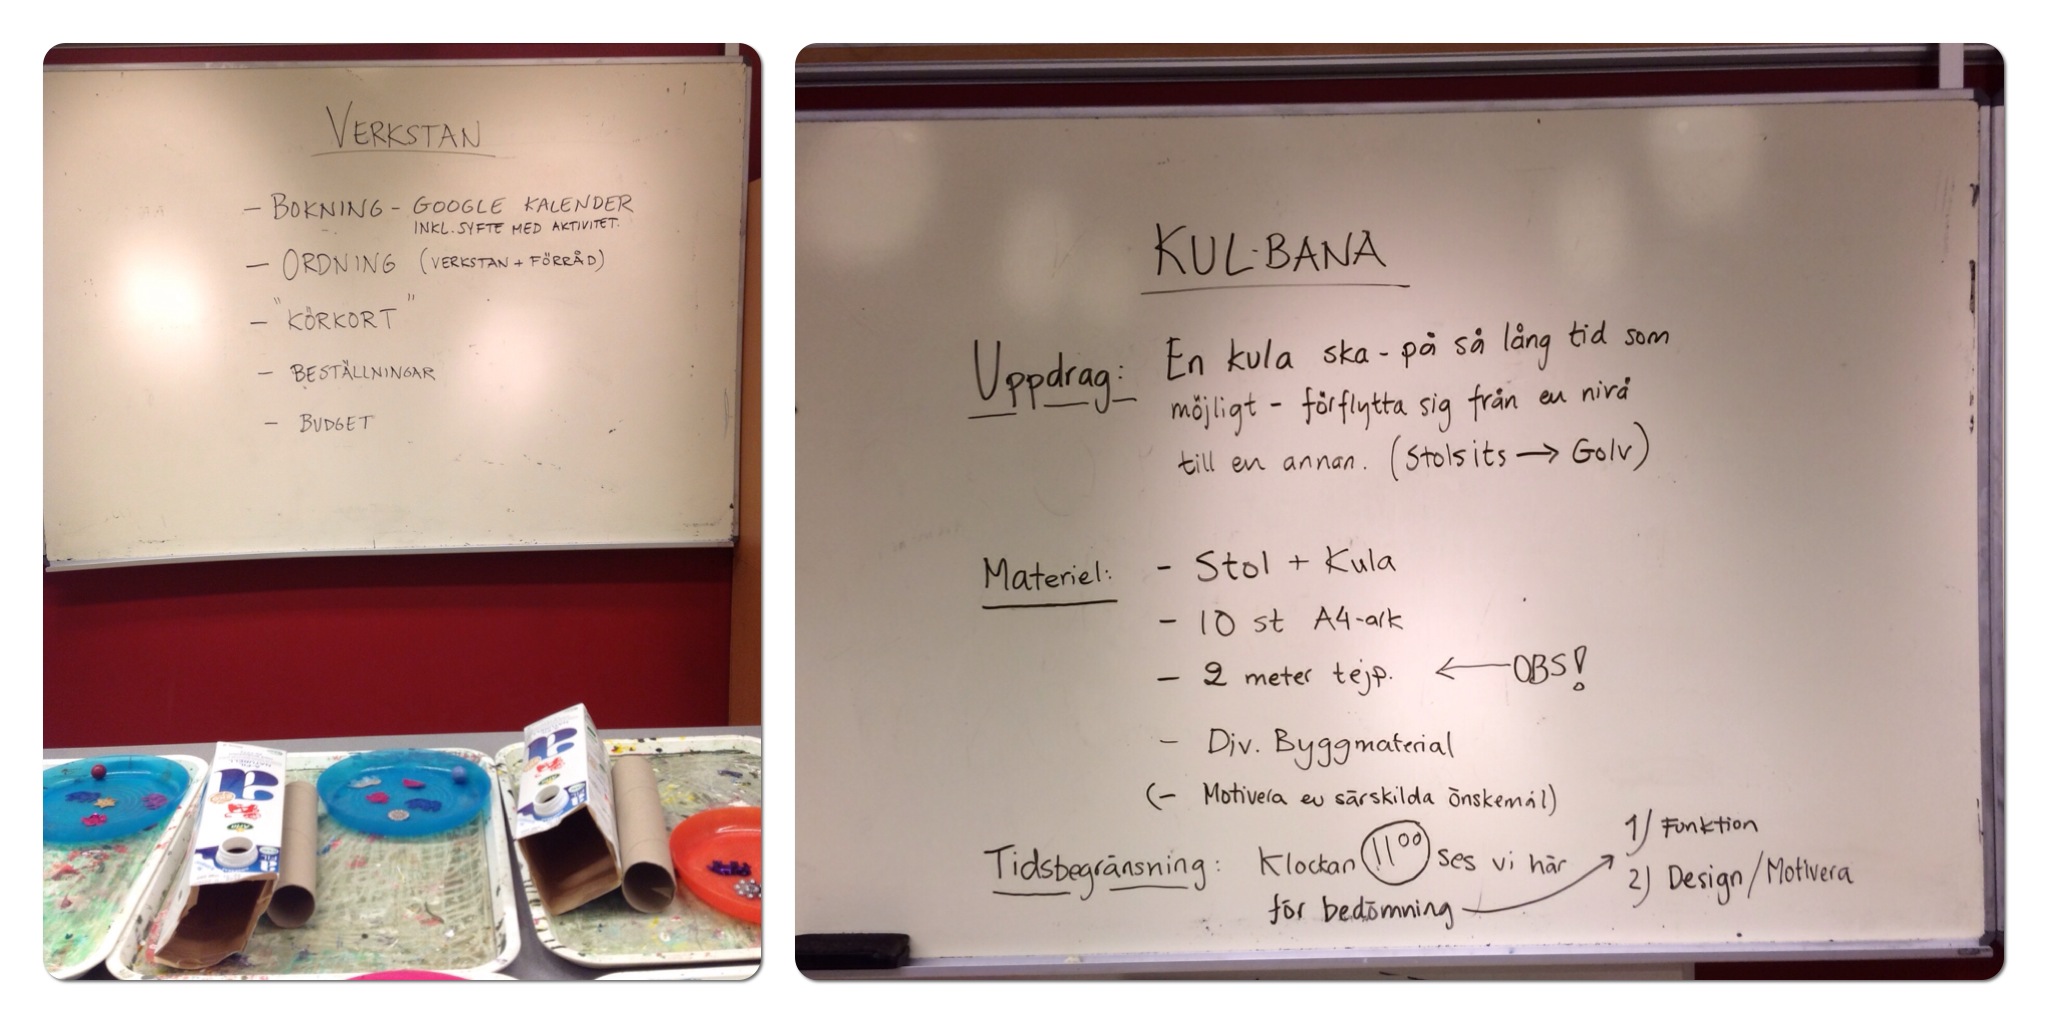 VERKSTAN
- BOKNING - GOOGLE KALENDER
INKL. SYFTE MED AKTIVITET.
- ORDNING (VERKSTAN + FÖRRÅD)
- "KÖRKORT"
- BESTÄLLNINGAR
- BUDGET
a
a
KUL-BANA
Uppdrag: En kula ska - på så lång tid som
möjligt - förflytta sig från en nivå
till en annan. (Stolsits → Golv)
Materiel: - Stol + Kula
- 10 st A4-ark
- 2 meter tejp. ← OBS!
- Div. Byggmaterial
(- Motivera ev särskilda önskemål)
Tidsbegränsning: Klockan 11⁰⁰ ses vi här
för bedömning →
1) Funktion
2) Design/Motivera